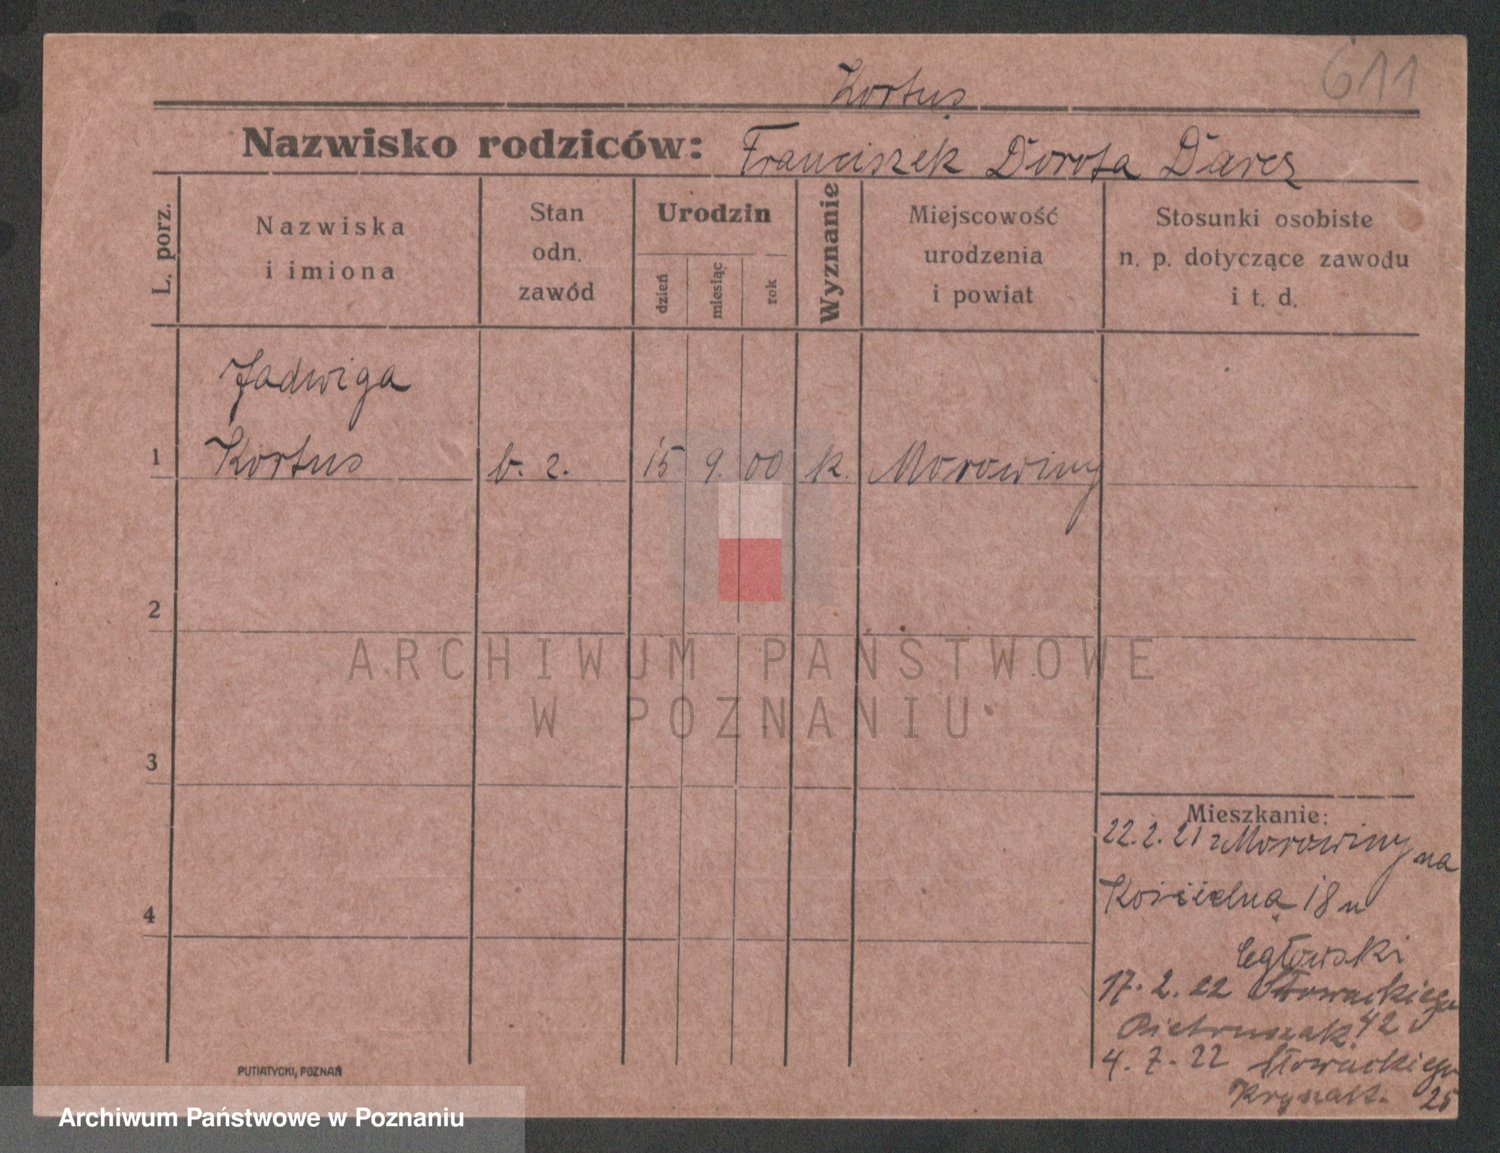 611
Kortus
Nazwisko rodziców: Franciszek Dorota Darcz
L. porz.
Nazwiska
i imiona
Stan
odn.
zawód
Urodzin
dzień
miesiąc
rok
Wyznanie
Miejscowość
urodzenia
i powiat
Stosunki osobiste
n. p. dotyczące zawodu
i t. d.
Jadwiga
1 Kortus b. z. 15 9. 00 k. Morowiny
2
3
4
ARCHIWUM PAŃSTWOWE
W POZNANIU
Mieszkanie:
22.2.21 z Morowiny na
Kościelną 18 u
Cegłowski
17. 2. 22 Słowackiego
Pietruszak 42
4. 7. 22 Słowackiego
25
PUTIATYCKI, POZNAŃ
Archiwum Państwowe w Poznaniu